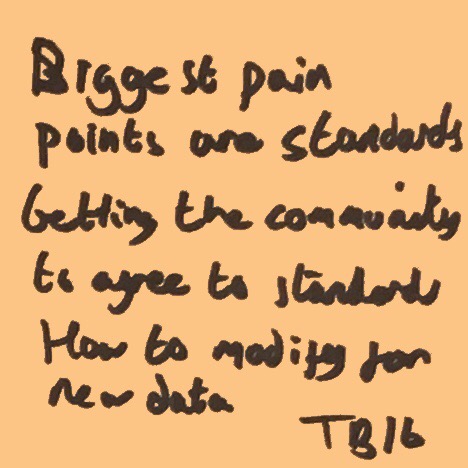 Biggest pain
points are standards
Getting the community
to agree to standards
How to modify for
new data
TB16